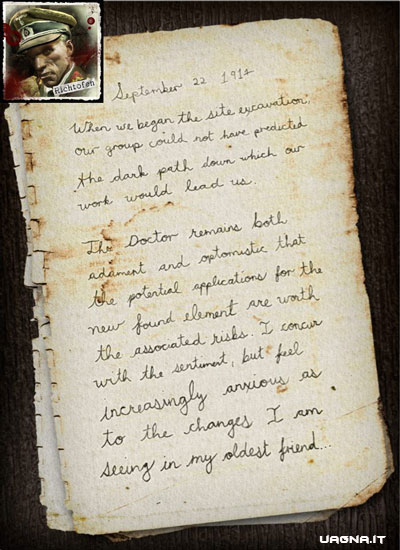 Richtofen
September 22 1914
When we began the site excavation,
our group could not have predicted
the dark path down which our
work would lead us.
The Doctor remains both
adament and optomistic that
the potential applications for the
new found element are worth
the associated risks. I concur
with the sentiment, but feel
increasingly anxious as
to the changes I am
seeing in my oldest friend...
UAGNA.IT